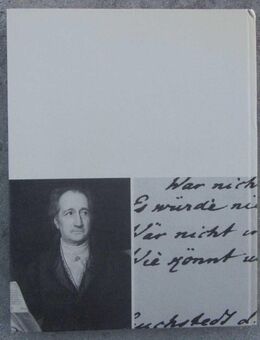 War nich
Es würde nie
Wär nicht
Wie könnt